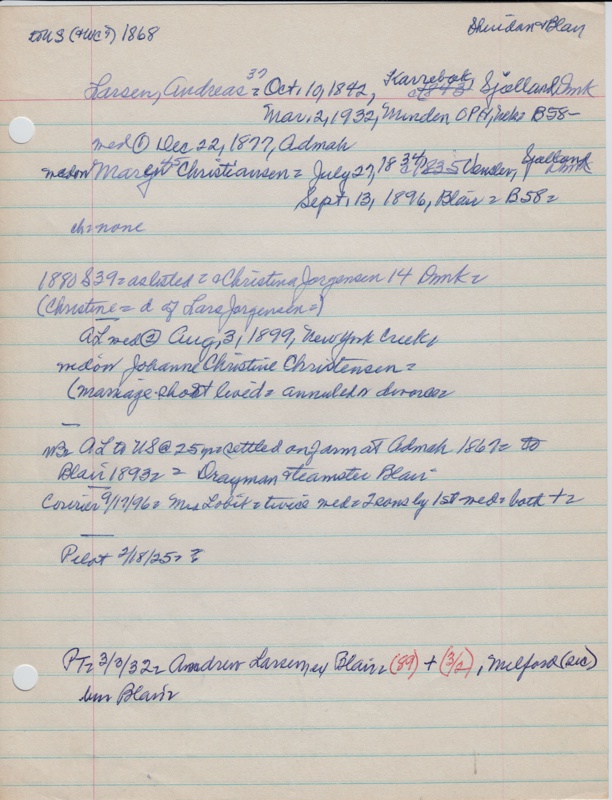 to US (+WC?) 1868 Sheridan + Blair
Larsen, Andreas 37 = Oct. 10, 1842, Karrebæk, Sjælland Dmk
Mar. 2, 1932, Minden OPH, Neb = B58-
med ① Dec 22, 1877, Admah
Christiansen = July 27, 1834, Sjælland Dmk
Sept. 13, 1896, Blair = B58=
ch = none
1880 S39 = as listed = + Christina Jorgensen 14 Dmk =
(Christine = d of Lars Jorgensen =)
AL med ② Aug, 3, 1899, New York Creek,
med'on Johanne Christine Christensen =
(marriage short lived = annulled or divorce =
AL to US @ 25 yr = settled on farm at Admah 1867 = to
Blair 1893 = = Drayman + teamster Blair -
Courier 9/17/96 = Mrs = twice med = 2 sons by 1st med = both + =
Pilot 2/18/25 = ?
PT = 3/3/32 = Andrew Larsen, ex Blair = (89) + (3/2), Milford (sic)
bur Blair =